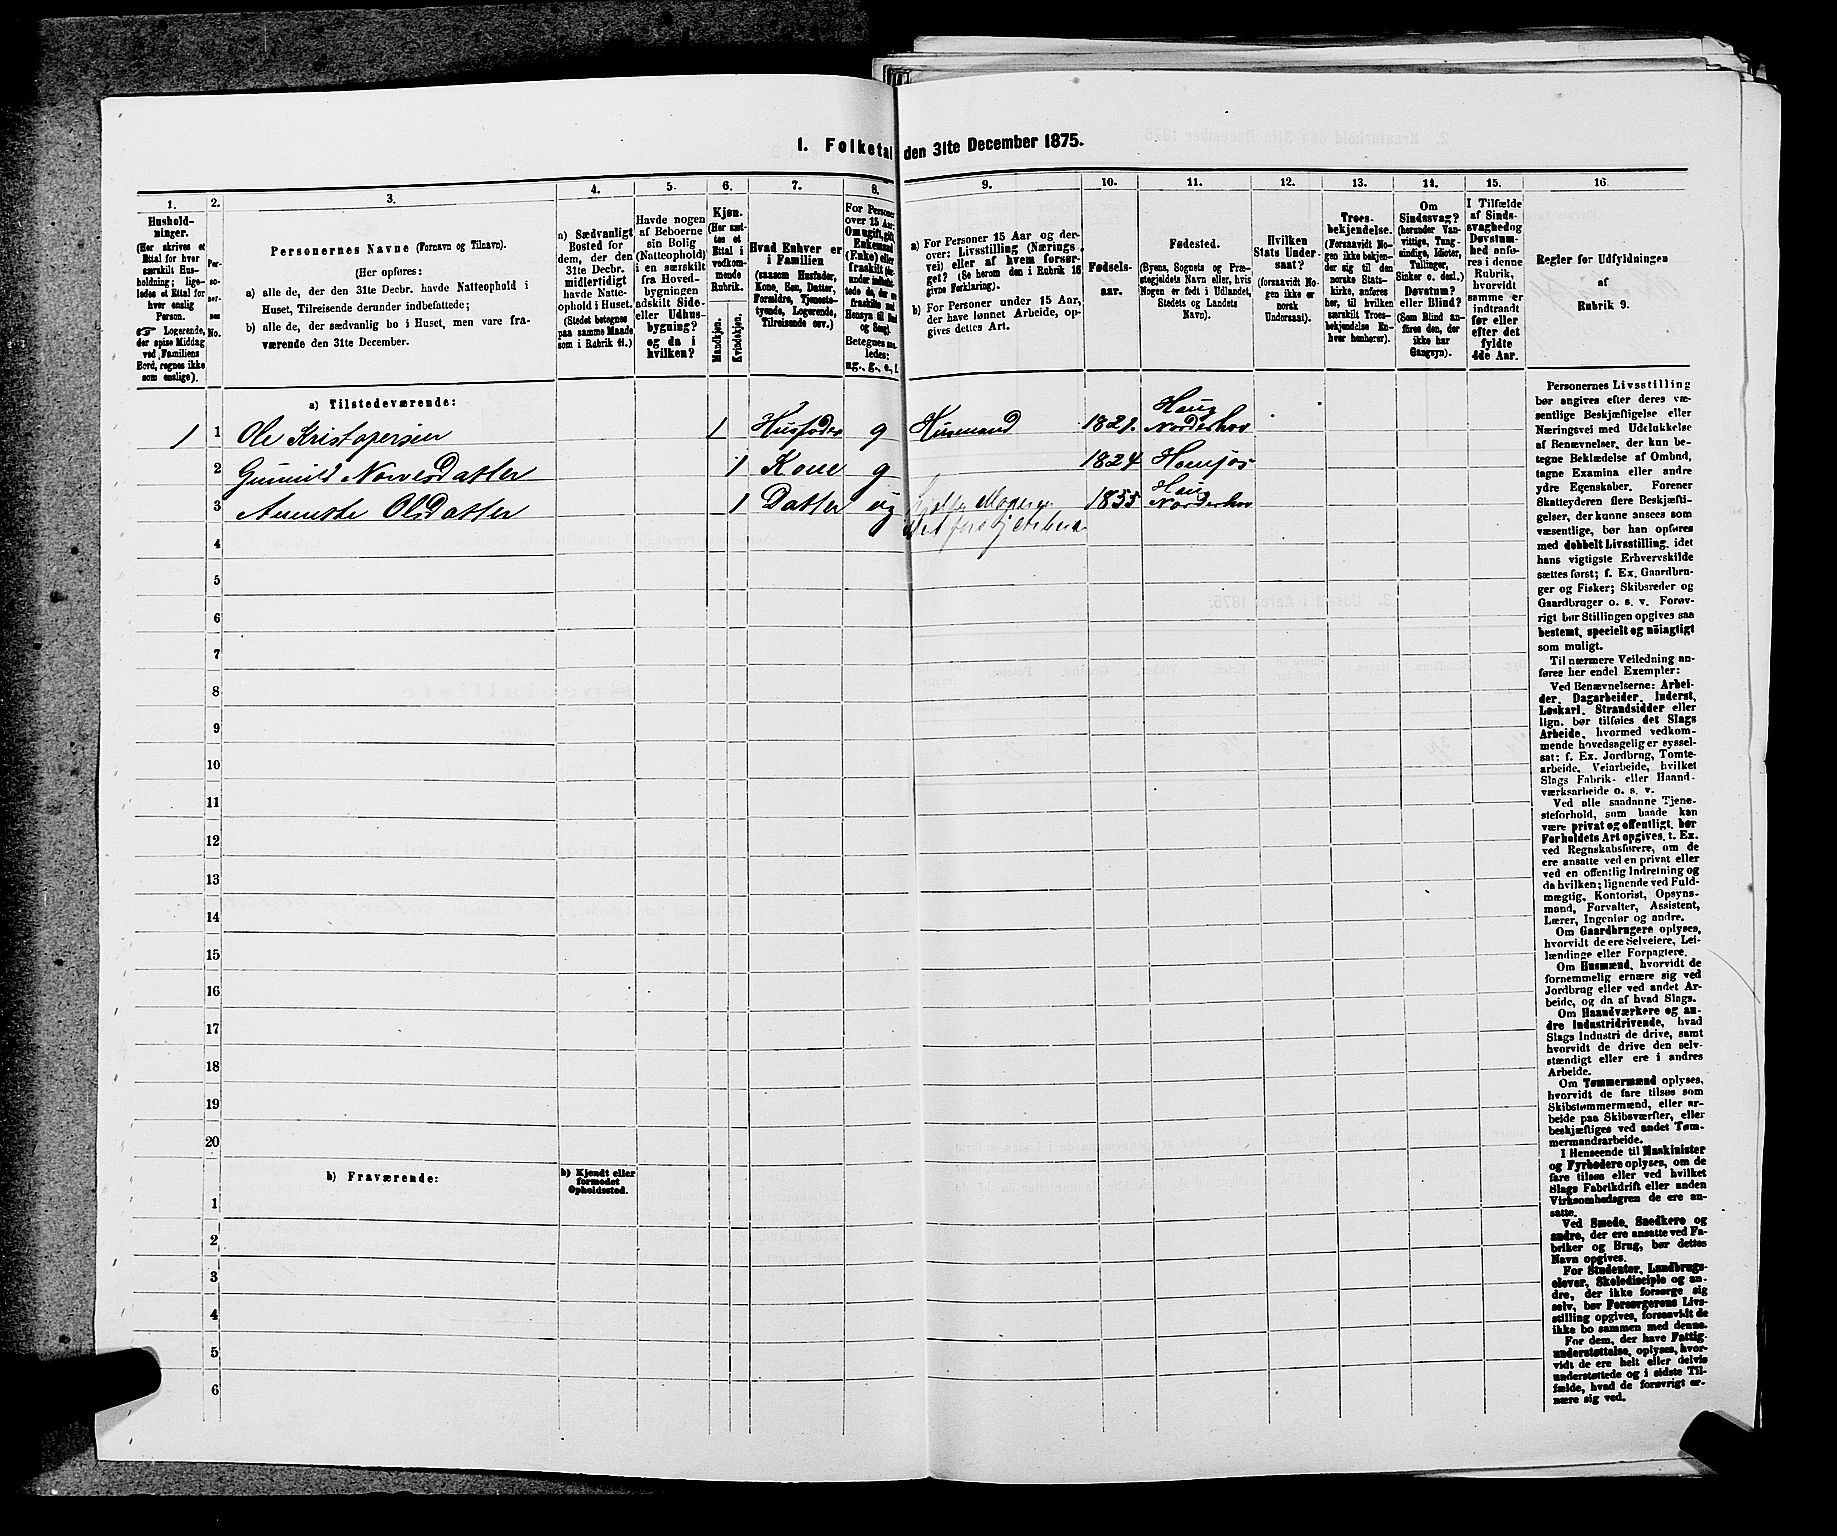 I. Folketal den 31te December 1875.
1.
2.
3.
4.
5.
6.
7.
8.
9.
10.
11.
12.
13.
14.
15.
16.
Hushold-
ninger.
(Her skrives et
Ettal for hver
særskilt Hus-
holdning; lige-
ledes et Ettal for
hver enslig
Person.
☞ Logerende,
der spise Middag
ved Familiens
Bord, regnes ikke
som enslige).
Per-
so-
ner-
nes
No.
Personernes Navne (Fornavn og Tilnavn).
(Her opføres:
a) alle de, der den 31te Decbr. havde Natteophold i
Huset, Tilreisende derunder indbefattede;
b) alle de, der sædvanlig bo i Huset, men vare fra-
værende den 31te December.
a) Sædvanligt
Bosted for
dem, der den
31te Decbr.
midlertidigt
havde Natte-
ophold i Huset.
(Stedet betegnes
paa samme Maade
som i Rubrik 11.)
Havde nogen
af Beboerne
sin Bolig
(Natteophold)
i en særskilt
fra Hoved-
bygningen
adskilt Side-
eller Udhus-
bygning?
og da i
hvilken?
Kjøn.
(Her sæt-
tes et
Ettal i
vedkom-
mende
Rubrik.
Mandkjøn.
Kvindekjøn.
Hvad Enhver er
i Familien
(saasom Husfader,
Kone, Søn, Datter,
Forældre, Tjeneste-
tyende, Logerende,
Tilreisende osv.)
For Personer
over 15 Aar:
Om ugift, gift,
Enkemand
(Enke) eller
fraskilt
Betegnes saa-
ledes:
ug., g., e., f.
a) For Personer 15 Aar og der-
over: Livsstilling (Nærings-
vei) eller af hvem forsør-
get? (Se herom den i Rubrik 16
givne Forklaring).
b) For Personer under 15 Aar,
der have lønnet Arbeide, op-
gives dettes Art.
Fødsels-
aar.
Fødested.
(Byens, Sognets og Præ-
stegjeldets Navn eller, hvis
Nogen er født i Udlandet,
Stedets og Landets
Navn).
Hvilken
Stats Under-
saat?
(forsaavidt No-
gen ikke er
norsk
Undersaat).
Troes-
bekjendelse.
(Forsaavidt No-
gen ikke bekjen-
der sig til den
norske Stats-
kirke, anføres
her, til hvilken
særskilt Troes-
bekjendelse En-
hver henhører).
Om
Sindssvag?
(herunder Van-
vittige, Tung-
sindige, Idioter,
Tullinger,
Sinker o. desl.)
Døvstum?
eller Blind?
(Som Blind an-
føres den, der
ikke har
Gangsyn).
I Tilfælde
af Sinds-
svaghed og
Døvstum-
hed anfø-
res i denne
Rubrik,
hvorvidt
samme er
indtraadt
før eller
efter det
fyldte
4de Aar.
Regler for Udfyldningen
af
Rubrik 9.
a) Tilstedeværende:
1 1 Ole Kristopersen 1 Husfader g Husmand 1821. Haug Norderhov
2 Gunnild Norvesdatter 1 Kone g 1824
3 Auneste Olsdatter 1 Datter ug 1855 Haug Norderhov
4
5
6
7
8
9
10
11
12
13
14
15
16
17
18
19
20
b) Fraværende:
b) Kjendt eller
formodet
Opholdssted.
1
2
3
4
5
6
Personernes Livsstilling
bør angives efter deres væ-
sentlige Beskjæftigelse eller
Næringsvei med Udelukkelse
af Benævnelser, der kun be-
tegne Beklædelse af Ombud,
tagne Examina eller andre
ydre Egenskaber. Forener
Skatteyderen flere Beskjæfti-
gelser, der kunne ansees som
væsentlige, bør han opføres
med dobbelt Livsstilling, idet
hans vigtigste Erhvervskilde
sættes først; f. Ex. Gaardbru-
ger og Fisker; Skibsreder og
Gaardbruger o. s. v. Forøv-
rigt bør Stillingen opgives saa
bestemt, specielt og nöiagtigt
som muligt.
Til nærmere Veiledning an-
føres her endel Exempler:
Ved Benævnelserne: Arbei-
der, Dagarbeider, Inderst,
Løskarl, Strandsidder eller
lign. bør tilføies det Slags
Arbeide, hvormed vedkom-
mende hovedsagelig er syssel-
sat; f. Ex. Jordbrug, Tomte-
arbeide, Veiarbeide, hvilket
Slags Fabrik- eller Haand-
værksarbeide o. s. v.
Ved alle saadanne Tjene-
steforhold, som baade kan
være privat og offentligt, bør
Forholdets Art opgives, t. Ex.
ved Regnskabsførere, om de
ere ansatte ved en privat eller
ved en offentlig Indretning og
da hvilken; lignende ved Fuld-
mægtig, Kontorist, Opsyns-
mand, Forvalter, Assistent,
Lærer, Ingeniør og andre.
Om Gaardbrugere oplyses,
hvorvidt de ere Selveiere, Lei-
lændinge eller Forpagtere.
Om Husmænd, hvorvidt de
fornemmelig ernære sig ved
Jordbrug eller ved andet Ar-
beide, og da af hvad Slags.
Om Haandværkere og an-
dre Industridrivende, hvad
Slags Industri de drive, samt
hvorvidt de drive den selv-
stændigt eller ere i andres
Arbeide.
Om Tømmermænd oplyses,
hvorvidt de fare tilsøs som
Skibstømmermænd, eller ar-
beide paa Skibsværfter, eller
beskjæftiges ved andet Tøm-
mermandsarbeide.
I Henseende til Maskinister
og Fyrbødere oplyses, om de
fare tilsøs eller ved hvilket
Slags Fabrikdrift eller anden
Virksomhedsgren de ere an-
satte.
Ved Smede, Snedkere og
andre, der ere ansatte ved Fa-
briker og Brug, bør dettes
Navn opgives.
For Studenter, Landbrugs-
elever, Skoledisciple og an-
dre, der ikke forsørge sig
selv, bør Forsørgerens Livs-
stilling opgives, forsaavidt de
ikke bo sammen med denne.
For dem, der have Fattig-
understøttelse, oplyses, hvor-
vidt de ere helt eller delvis
understøttede og i sidste Til-
fælde, hvad de forøvrigt er-
nære sig ved.